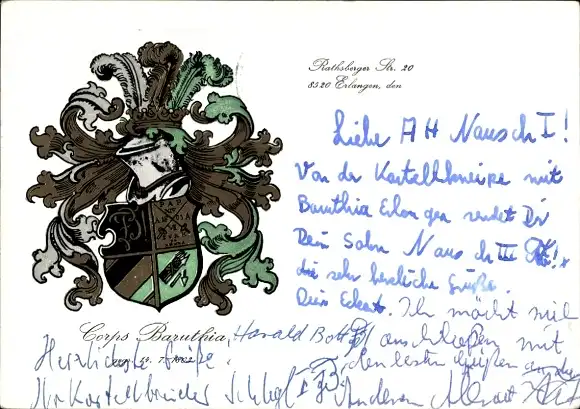 Rathsberger Str. 20
8520 Erlangen, den
Liebe AH Nausch I!
Von der Kartellkneipe mit
Baruthia Erlangen sendet Dir
Dein Sohn Nausch III
die sehr herzliche Grüße.
Dein Eckart. Ich möcht mich
Corps Baruthia, Harald anschließen mit
Herzliche Grüße. den besten Grüßen an die
Ihr Kartellbruder Anderen